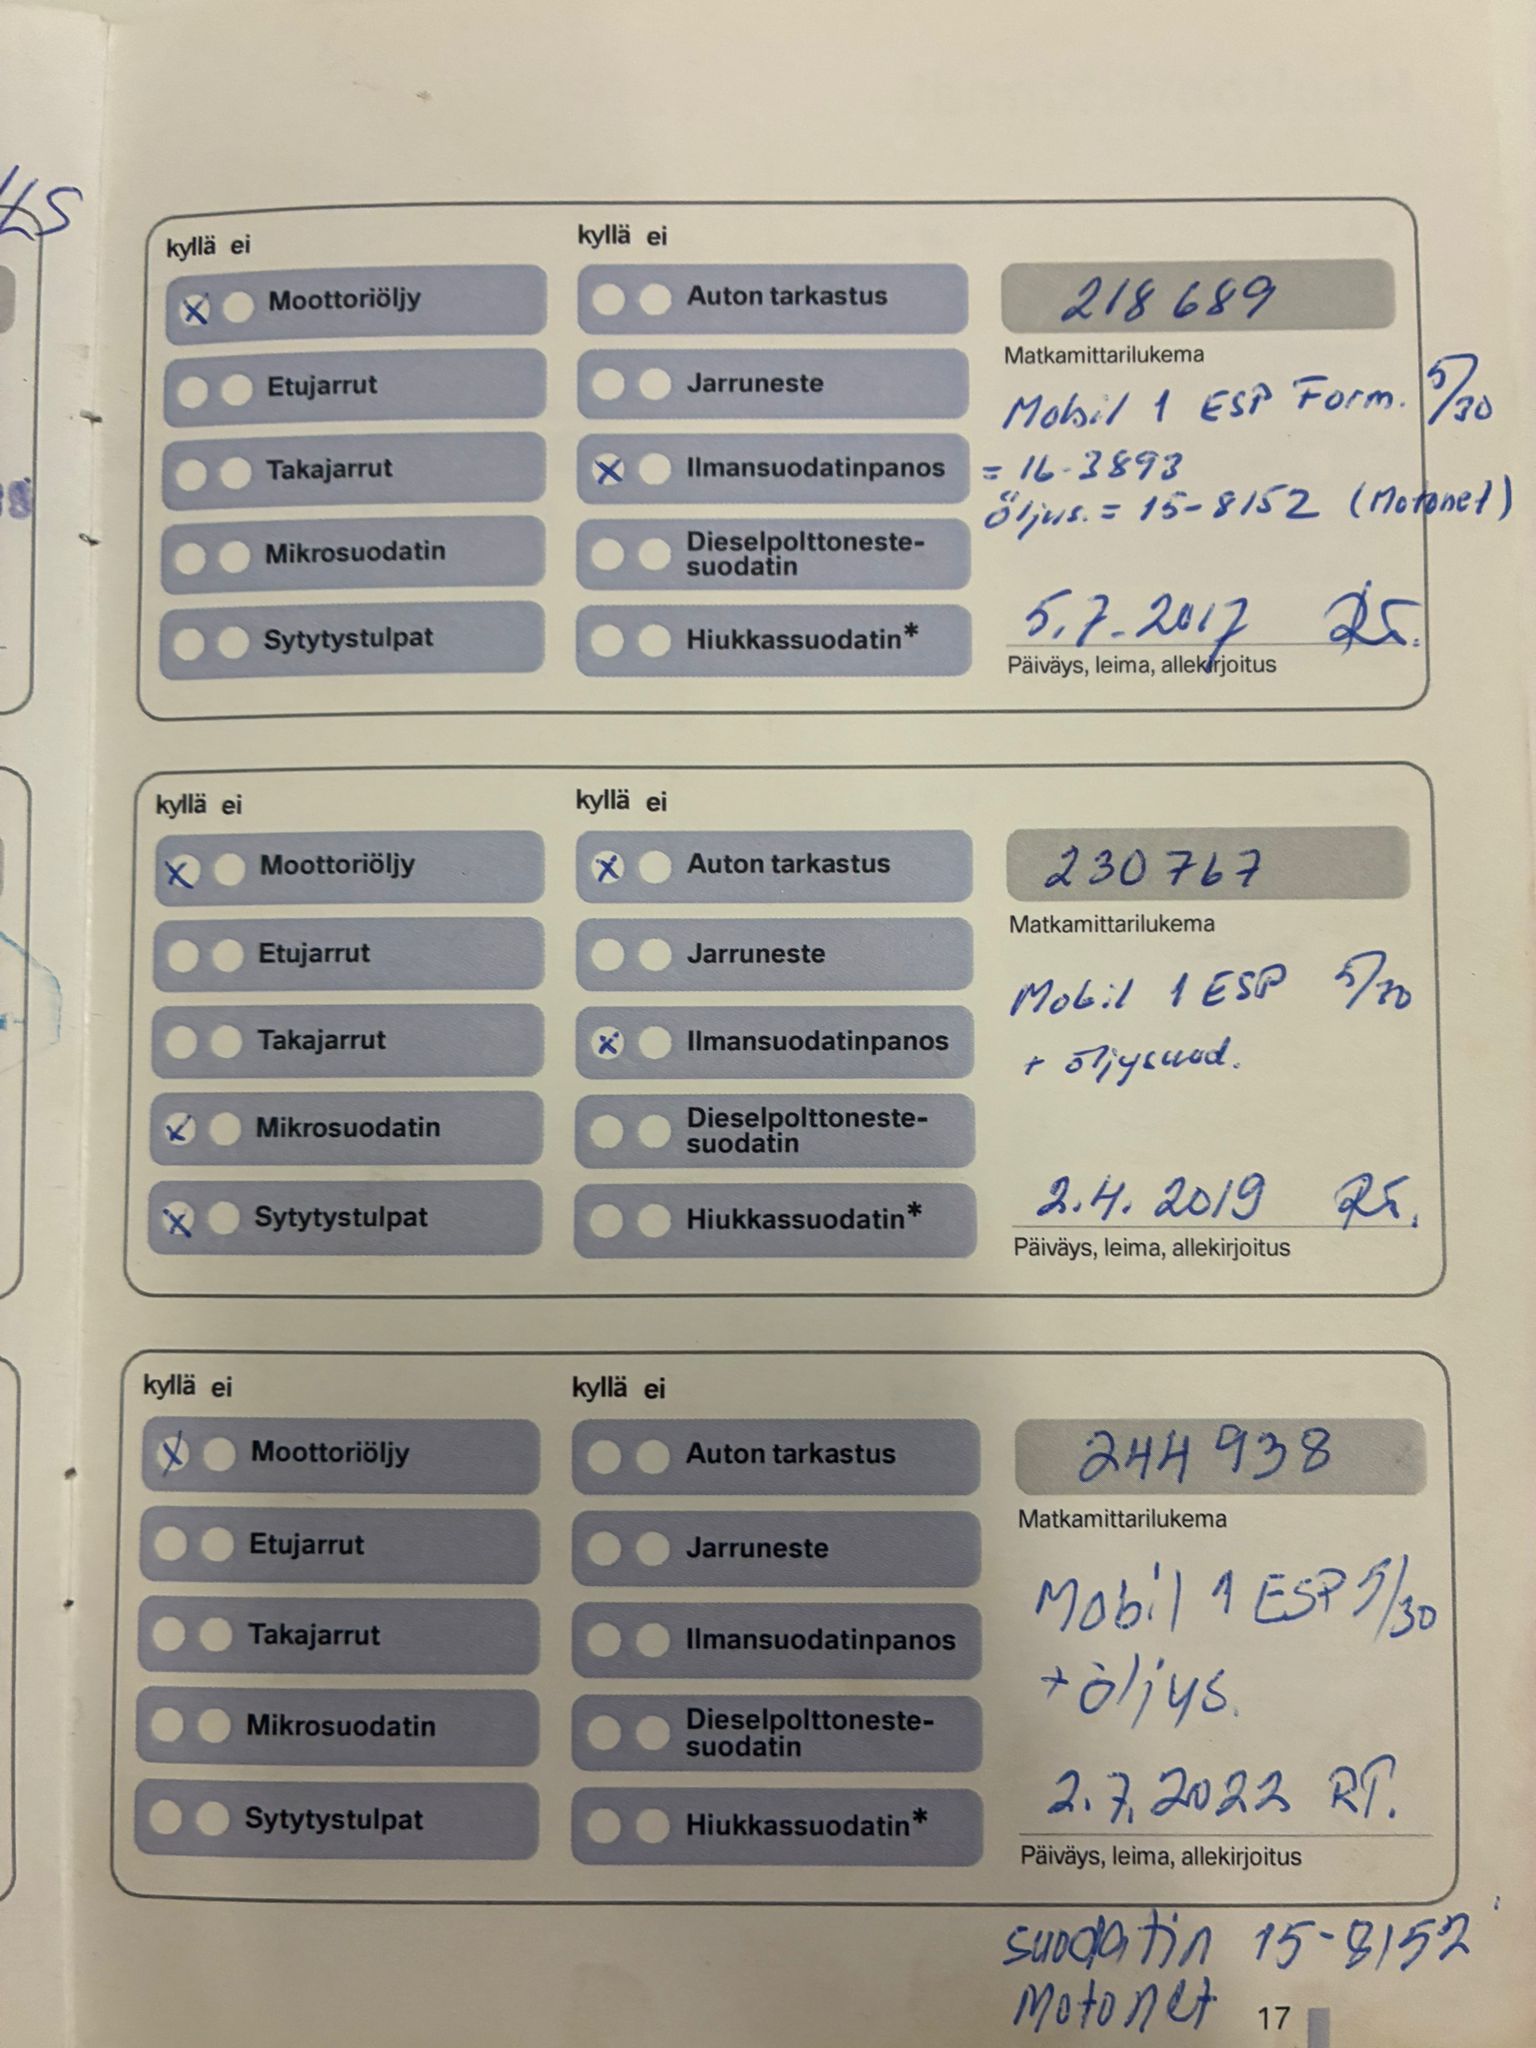 HS
kyllä ei
Moottoriöljy
Etujarrut
Takajarrut
Mikrosuodatin
Sytytystulpat
kyllä ei
Auton tarkastus
Jarruneste
Ilmansuodatinpanos
Dieselpolttoneste-
suodatin
Hiukkassuodatin*
218 689
Matkamittarilukema
Mobil 1 ESP Form. 5/30
= 16-3893
öljys. = 15-8152 (Motonet)
5.7.2017 RT.
Päiväys, leima, allekirjoitus
kyllä ei
Moottoriöljy
Etujarrut
Takajarrut
Mikrosuodatin
Sytytystulpat
kyllä ei
Auton tarkastus
Jarruneste
Ilmansuodatinpanos
Dieselpolttoneste-
suodatin
Hiukkassuodatin*
230 767
Matkamittarilukema
Mobil 1 ESP 5/30
+ öljysuod.
2.4.2019 RT.
Päiväys, leima, allekirjoitus
kyllä ei
Moottoriöljy
Etujarrut
Takajarrut
Mikrosuodatin
Sytytystulpat
kyllä ei
Auton tarkastus
Jarruneste
Ilmansuodatinpanos
Dieselpolttoneste-
suodatin
Hiukkassuodatin*
244 938
Matkamittarilukema
Mobil 1 ESP 5/30
+ öljys.
2.7.2022 RT.
Päiväys, leima, allekirjoitus
suodatin 15-8152
Motonet
17